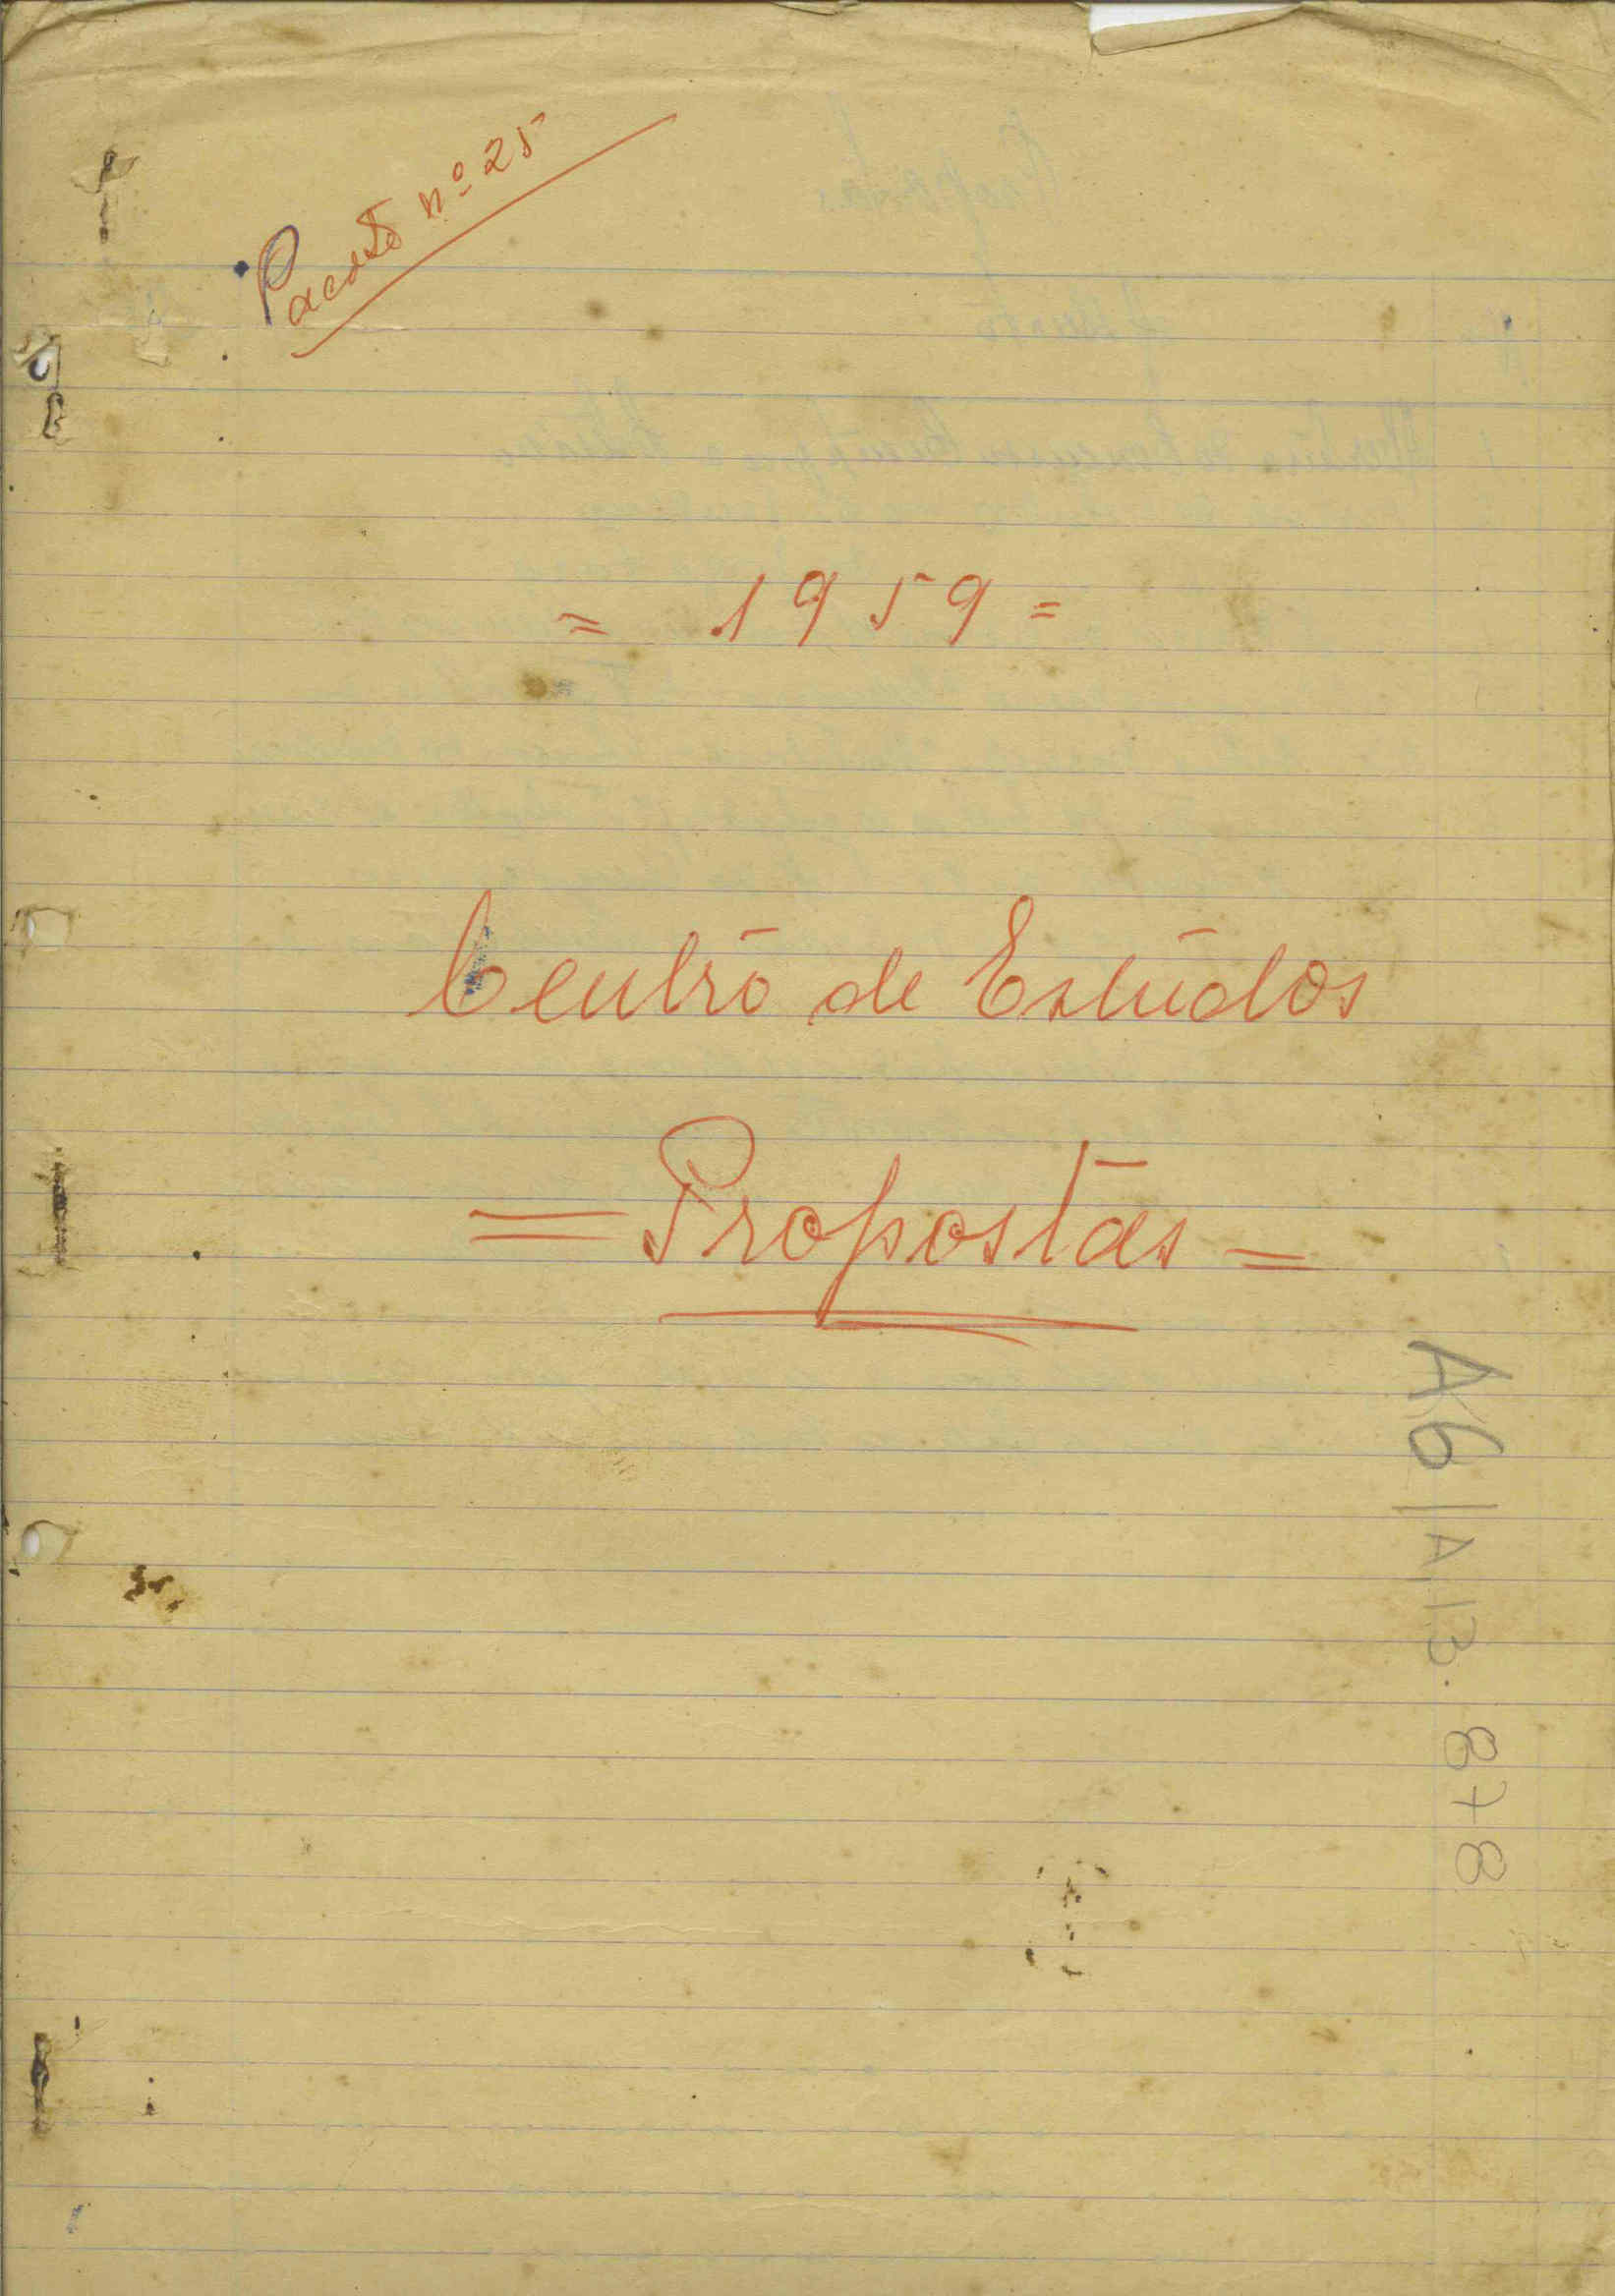 Pacote nº 25
= 1959 =
Centro de Estudos
= Propostas =
A6|A.13. 8+8